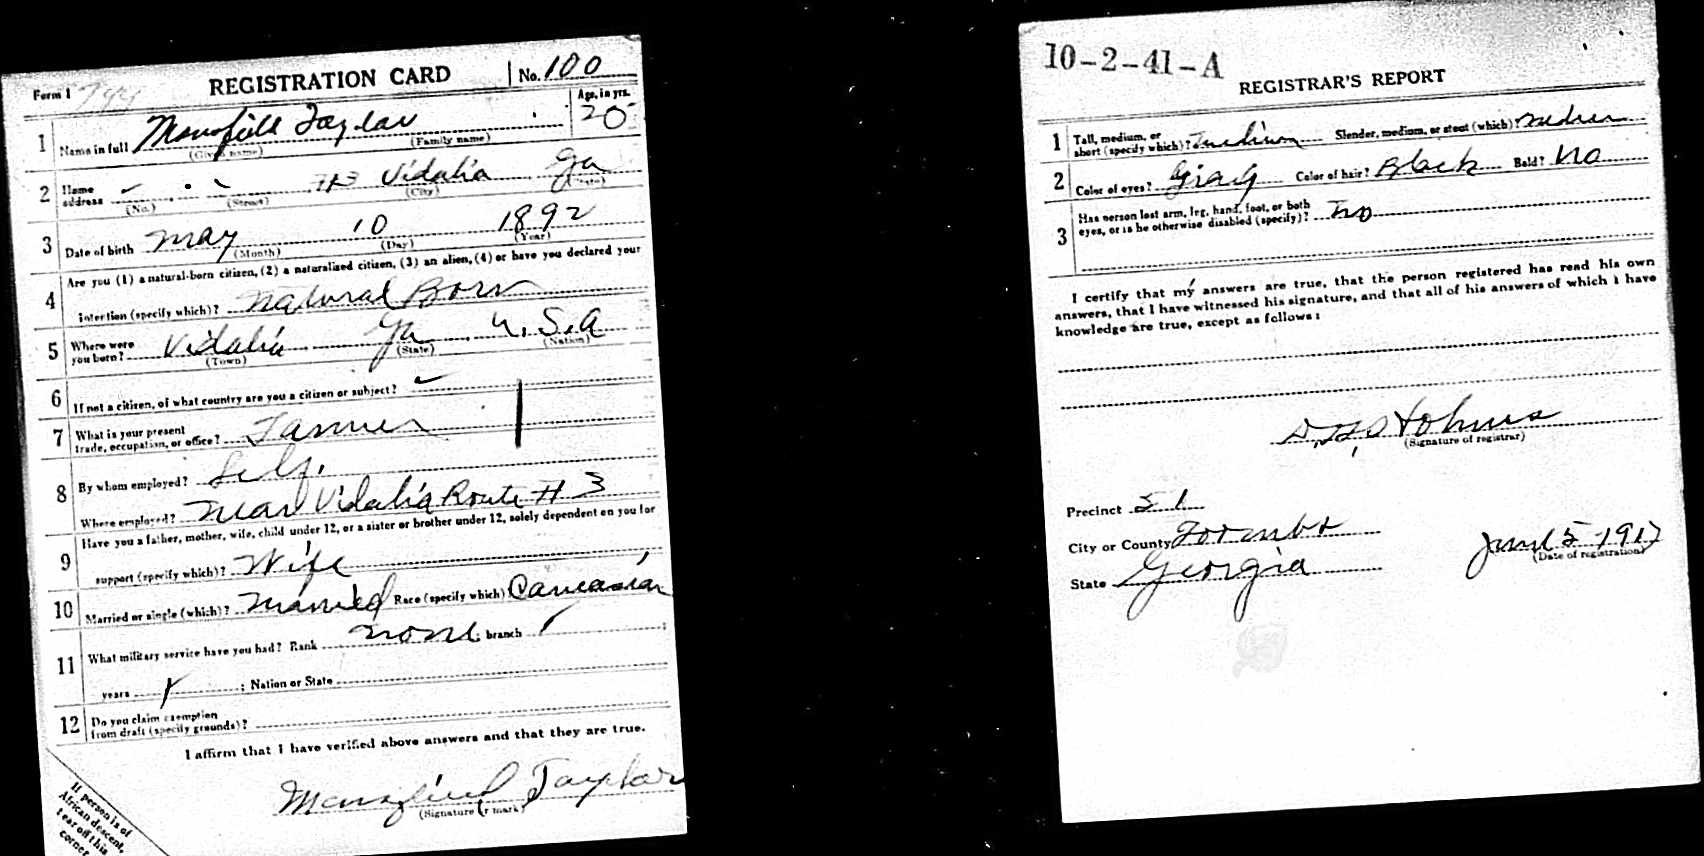 Form 1 REGISTRATION CARD No. 100
1 Name in full Mansfield Taylor Age, in yrs. 25
(Given name) (Family name)
2 Home address #3 Vidalia Ga
(No.) (Street) (City) (State)
3 Date of birth May 10 1892
(Month) (Day) (Year)
4 Are you (1) a natural-born citizen, (2) a naturalized citizen, (3) an alien, (4) or have you declared your
intention (specify which)? Natural Born
5 Where were you born? Vidalia Ga U.S.A
(Town) (State) (Nation)
6 If not a citizen, of what country are you a citizen or subject?
7 What is your present
trade, occupation, or office? Farmer
8 By whom employed? Self.
Where employed? near Vidalia Route # 3
9 Have you a father, mother, wife, child under 12, or a sister or brother under 12, solely dependent on you for
support (specify which)? Wife
10 Married or single (which)? Married Race (specify which) Caucasian
11 What military service have you had? Rank none; branch
years ; Nation or State
12 Do you claim exemption
from draft (specify grounds)?
I affirm that I have verified above answers and that they are true.
Mansfield Taylor
(Signature or mark)
If person is of
African descent,
tear off this
corner
10-2-41-A
REGISTRAR'S REPORT
1 Tall, medium, or
short (specify which)? medium Slender, medium, or stout (which)? medium
2 Color of eyes? Gray Color of hair? Black Bald? No
3 Has person lost arm, leg, hand, foot, or both
eyes, or is he otherwise disabled (specify)? no
I certify that my answers are true, that the person registered has read his own
answers, that I have witnessed his signature, and that all of his answers of which I have
knowledge are true, except as follows:
(Signature of registrar)
Precinct 51
City or County Toombs
State Georgia June 5-1917
(Date of registration)